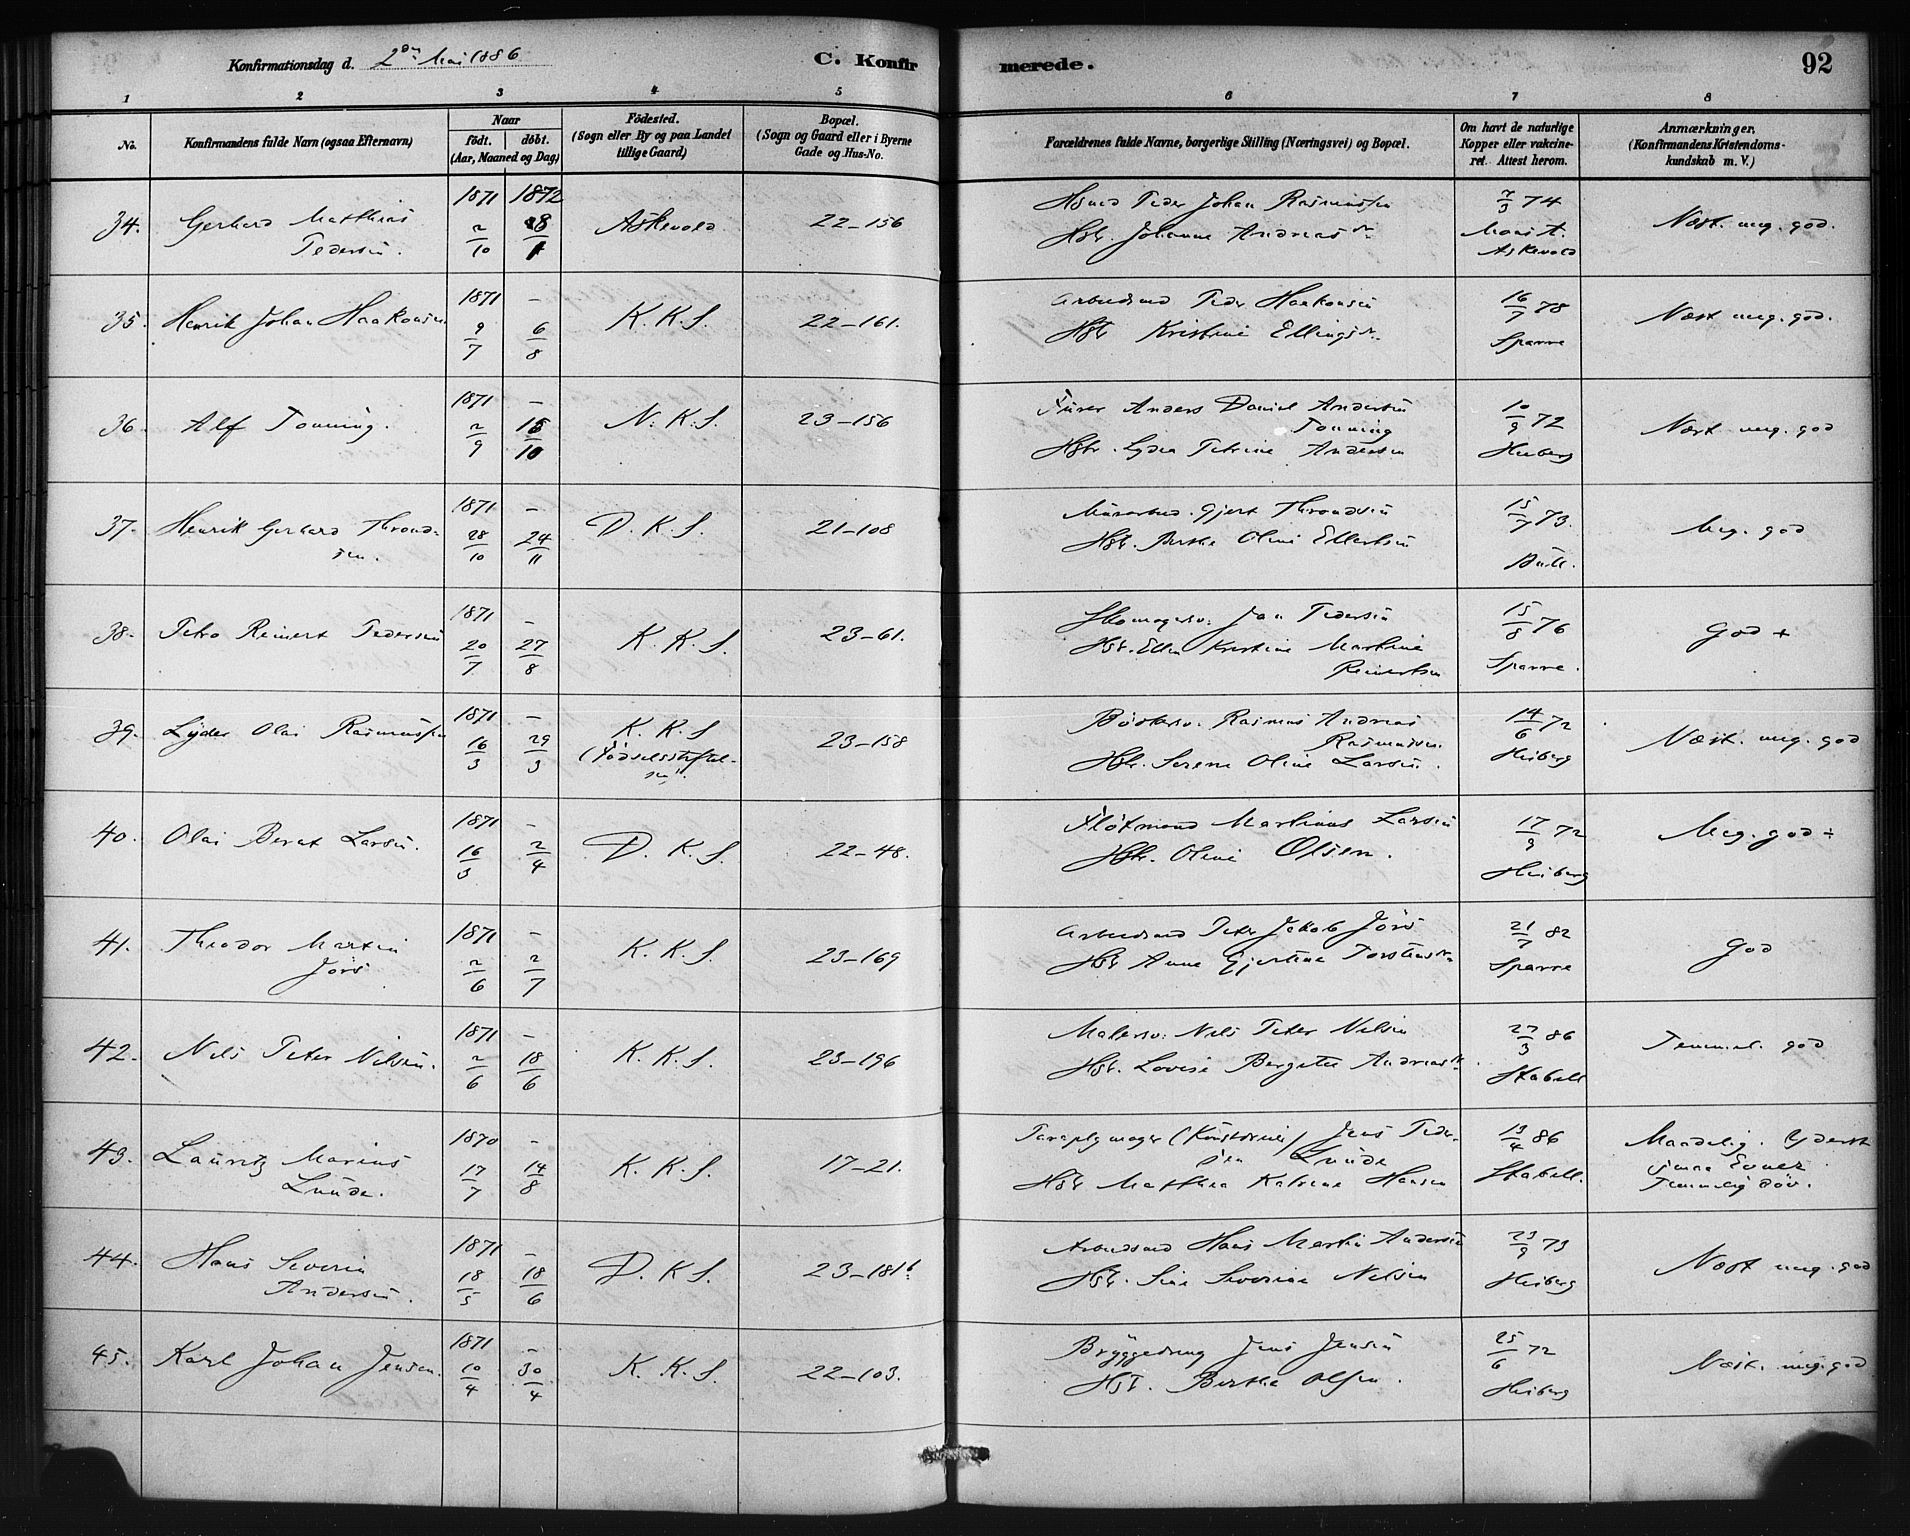 Konfirmationsdag d. 2den Mai 1886
C. Konfirmerede.
92
1 2 3 4 5 6 7 8
No.
Konfirmandens fulde Navn (ogsaa Efternavn)
Naar
födt. döbt.
(Aar, Maaned og Dag)
Födested.
(Sogn eller By og paa Landet
tillige Gaard)
Bopæl.
(Sogn og Gaard eller i Byerne
Gade og Hus-No.
Forældrenes fulde Navne, borgerlige Stilling (Næringsvei) og Bopæl.
Om havt de naturlige
Kopper eller vakcine-
ret. Attest herom.
Anmærkninger.
(Konfirmandens Kristendoms-
kundskab m. V.)
34. Gerhard Matthias
Pedersen.
1871 2/10
1872 28/1
Askevold
22-156
Husmd Peder Johan Rasmussen
Hstr. Johanne Andreasdr
7/3 74
Mons A.
Askevold
Næst. meg. god.
35. Henrik Johan Haakonsen.
1871 9/7
- 6/8
K. K. S.
22-161.
Arbeidsmd Peder Haakonsen
Hstr Kristine Ellingsdr
16/7 78
Sparre
Næst meg. god.
36. Alf Tonning.
1871 2/9
- 15/10
N. K. S.
23-156
Furer Anders Daniel Andersen
Tonning
Hstr. Lydia Petrine Andersen
10/9 72
Heiberg
Næst meg. god
37. Henrik Gerhard Thrond-
sen.
1871 28/10
- 24/11
D. K. S.
21-108
Murarbd. Gjert Throndsen
Hstr. Berthe Oline Ellertsen
15/7 73.
Bull.
Meg. god
38. Petro Reinert Pedersen
1871 20/7
- 27/8
K. K. S.
23-61.
Skomagersv. Jan Pedersen
Hstr. Ellen Kristine Martine
Reinertsen
15/8 76
Sparre.
God +
39. Lyder Olai Rasmussen
1871 16/3
- 29/3
K. K. S
(Fødselsstiftel-
sen)
23-158
Bødkersv. Rasmus Andreas
Rasmussen.
Hstr. Serene Oline Larsen.
14/6 72
Heiberg
Næst. meg. god
40. Olai Bernt Larsen.
1871 16/3
- 2/4
D. K. S.
22-48.
Fløtmand Martinus Larsen
Hstr. Oline Olsen.
17/9 72
Heiberg
Meg. god ÷
41. Theodor Martin
Jørs
1871 2/6
- 2/7
K. K. S.
23-169
Arbeidsmd Peter Jakob Jørs
Hstr Anne Gjertine Torstensdr
21/7 82
Sparre
God
42. Nils Peter Nilsen.
1871 2/6
- 18/6
K. K. S.
23-196
Malersv. Nils Peter Nilsen
Hstr. Lovise Bergitte Andreasdr.
27/3 86
Stabell
Temmel. god
43. Lauritz Marius
Lunde.
1870 17/7
- 14/8
K. K. S.
17-21.
Paraplymager (Kunstdreier) Jens Peder-
sen Lunde
Hstr Matthea Katrine Hansen
13/4 86
Stabell.
Maadelig. Yderst
smaa Evner.
Temmelig døv.
44. Hans Severin
Andersen.
1871 18/5
- 18/6
D. K S.
23-181b.
Arbeidsmd Hans Martin Andersen
Hstr. Sine Severine Nilsen
23/9 73
Heiberg
Næst meg. god
45. Karl Johan Jensen.
1871 10/4
- 30/4
K. K. S
22-103.
Bryggedreng Jens Jensen
Hstr. Berthe Olsen.
25/6 72
Heiberg
Næst. meg. god